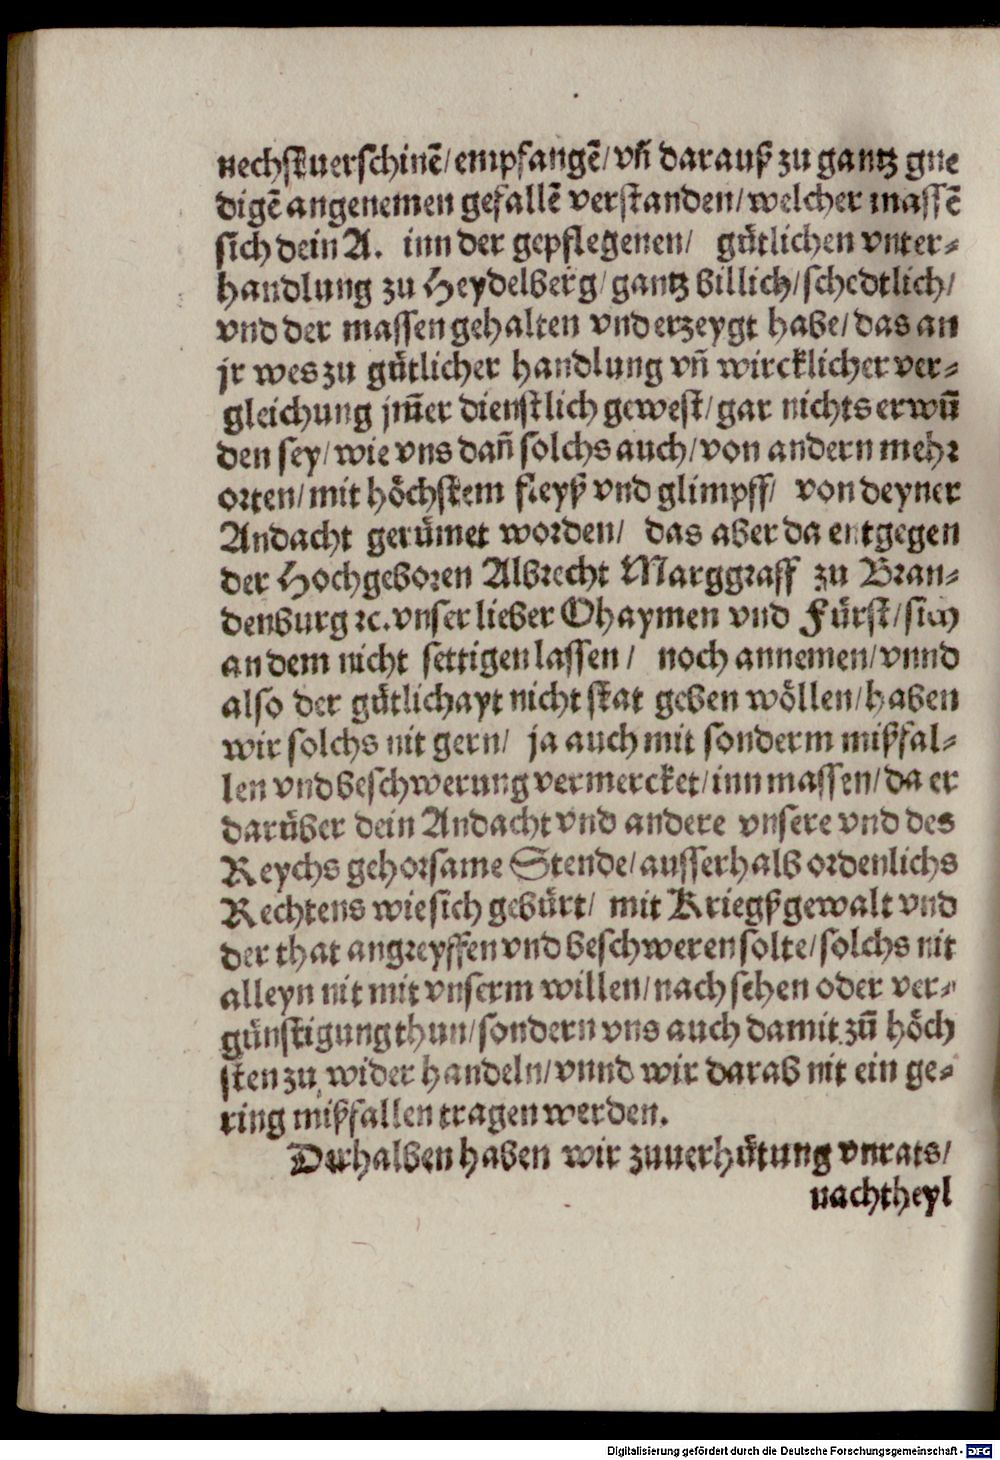 nechstuerschinẽ/ empfangẽ/ vñ darauß zu gantz gne
digẽ angenemen gefallẽ verstanden/ welcher massẽ
sich dein A. inn der gepflegenen/ gütlichen vnter-
handlung zu Heydelberg/ gantz billich/ schedtlich/
vnd der massen gehalten vnd erzeygt habe/ das an
jr wes zu gütlicher handlung vñ wircklicher ver-
gleichung jm̃er dienstlich gewest/ gar nichts erwũ
den sey/ wie vns dañ solchs auch/ von andern mehr
orten/ mit höchstem fleyß vnd glimpff/ von deyner
Andacht gerümet worden/ das aber da entgegen
der Hochgeboren Albrecht Marggraff zu Bran-
denburg ꝛc. vnser lieber Ohaymen vnd Fürst/ sich
an dem nicht settigen lassen/ noch annemen/ vnnd
also der gütlichayt nicht stat geben wöllen/ haben
wir solchs nit gern/ ja auch mit sonderm mißfal-
len vnd beschwerung vermercket/ inn massen/ da er
darüber dein Andacht vnd andere vnsere vnd des
Reychs gehorsame Stende/ ausserhalb ordenlichs
Rechtens wie sich gebürt/ mit Kriegßgewalt vnd
der that angreyffen vnd beschweren solte/ solchs nit
alleyn nit mit vnserm willen/ nach sehen oder ver-
günstigung thun/ sondern vns auch damit zũ höch
sten zu wider handeln/ vnnd wir darab nit ein ge-
ring mißfallen tragen werden.
Derhalben haben wir zuuerhütung vnrats/
nachtheyl
Digitalisierung gefördert durch die Deutsche Forschungsgemeinschaft - DFG